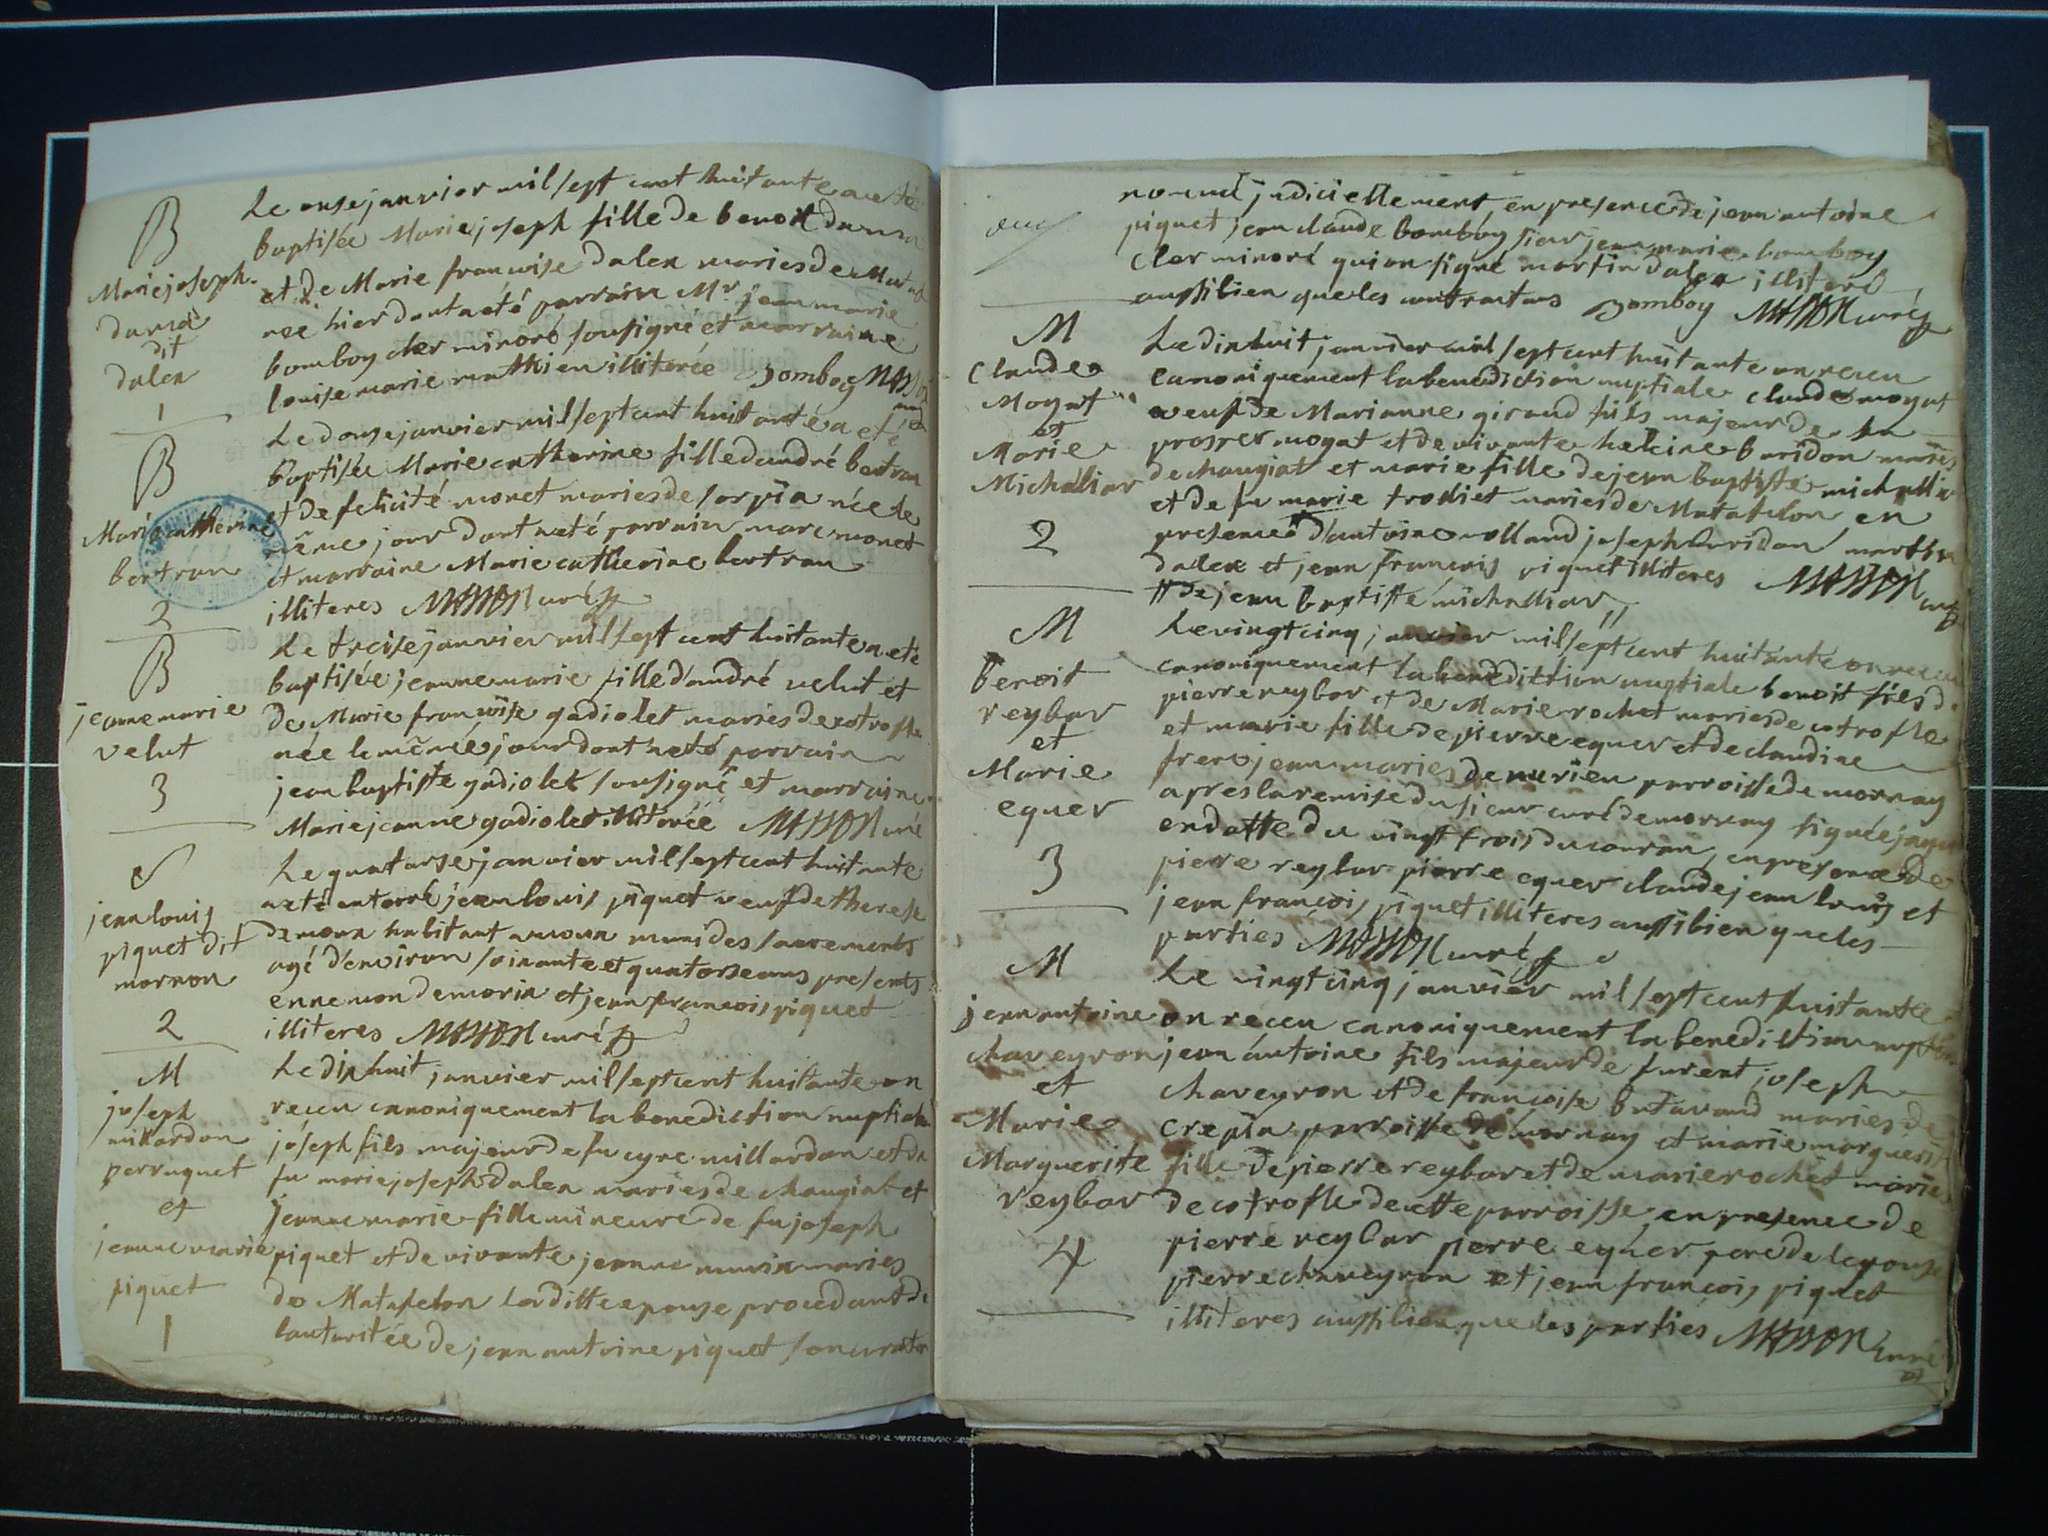 B
Marie joseph
dunod
dit
dalex
1
Le onse janvier mil sept cent huitante a eté
baptisée Marie joseph fille de benoit
et de Marie françoise dalex mariés de
née hier dont a eté parrain Mr jean marie
bomboy cler minoré sousigné et marraine
louise marie mathieu illiterée Bomboy
B
Marie catherine
bertran
2
Le douse janvier mil sept cent huitante a eté
baptisée Marie catherine fille d'andré bertran
et de felicité monet mariés de sorpia née le
même jour dont a eté parrain marc monet
et marraine Marie catherine bertran
illiteres MASSON curé
B
jeanne marie
velut
3
Le treise janvier mil sept cent huitante a eté
baptisée jeanne marie fille d'andré velut et
de Marie françoise gadiolet mariés de
née le même jour dont a eté parrain
jean baptiste gadiolet sousigné et marraine
Marie jeanne gadiolet illiterée MASSON curé
S
jean louis
piquet dit
mornon
2
Le quatorse janvier mil sept cent huitante
a eté enterré jean louis piquet veuf de therese
demoux habitant amoux muni des sacrements
agé d'environ soixante et quatorse ans presents
ennemon demorin et jean françois piquet
illiteres MASSON curé
M
joseph
millardon
perruquet
et
jeanne marie
piquet
1
Le dix huit janvier mil sept cent huitante on
receu canoniquement la benediction nuptiale
joseph fils majeur de fu cyre millardon et de
fu marie joseph dalex mariés de chaugiat et
jeanne marie fille mineure de fu joseph
piquet et de vivante jeanne marix mariés
de Matafelon laditte epouse procedant de
l'autoritée de jean antoine piquet son curateur
nommé judiciellement, en presence de jean antoine
piquet jean claude bomboy sieur jean marie bomboy
cler minoré qui on signé martin dalex illiteré
aussi bien que les contractans Bomboy MASSON curé
M
Claude
Mogat
et
Marie
Michalliar
2
Le dix huit janvier mil sept cent huitante on receu
canoniquement la benediction nuptiale claude mogat
veuf de Marianne giraud fils majeur de fu
prosper mogat et de vivante heleine baridon mariés
de chaugiat et marie fille de jean baptiste michalliar
et de fu marie trodiet mariés de Matafelon en
presence d'antoine volland joseph baridon martin
dalex et jean françois piquet illiteres MASSON curé
# de jean baptiste michalliar //
M
Benoit
reybar
et
Marie
equer
3
Le vingt cinq janvier mil sept cent huitante on receu
canoniquement la benediction nuptiale benoit fils de
pierre reybar et de Marie rochet mariés de cotrofle
et marie fille de pierre equer et de claudine
frerejean mariés de nurieu parroisse de mornay
apres la remise du sieur curé de mornay signée
en datte du vingt trois du couran, en presence de
pierre reybar pierre equer claude jean louis et
jean françois piquet illiteres aussi bien que les
parties MASSON curé
M
jean antoine
chaveyron
et
Marie
Marguerite
reybar
4
Le vingt cinq janvier mil sept cent huitante
on receu canoniquement la benediction nuptiale
jean antoine fils majeur de furent joseph
chaveyron et de françoise butavand mariés de
crepia parroisse de mornay et marie marguerite
fille de pierre reybar et de marie rochet mariés
de cotrofle de cette parroisse, en presence de
pierre reybar pierre equer pere de lepouse
pierre chaveyron et jean françois piquet
illiteres aussi bien que les parties MASSON curé